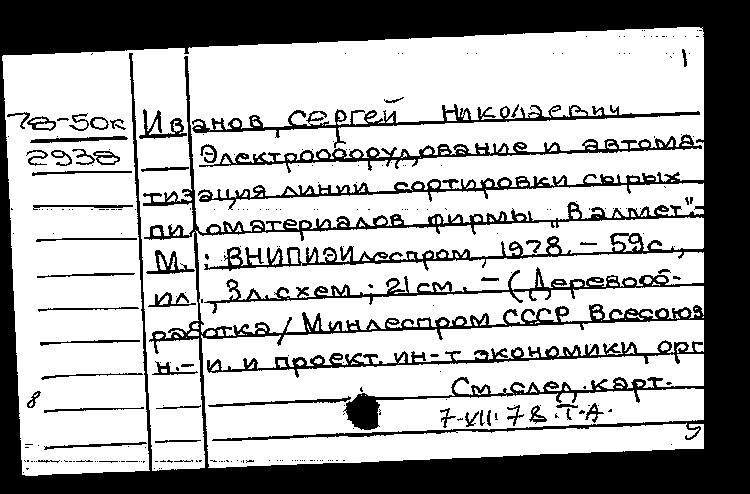 1
78-50к Иванов, Сергей Николаевич
2938 Электрооборудование и автома-
тизация линии сортировки сырых
пиломатериалов фирмы „Валмет".-
М.: ВНИПИЭИлеспром, 1978. - 59с.,
ил., 3л.схем.; 21см. - (Деревооб-
работка/Минлеспром СССР, Всесоюз
н.-и. и проект. ин-т экономики, орг
См.след.карт.
8
7-VII-78.Т.А.